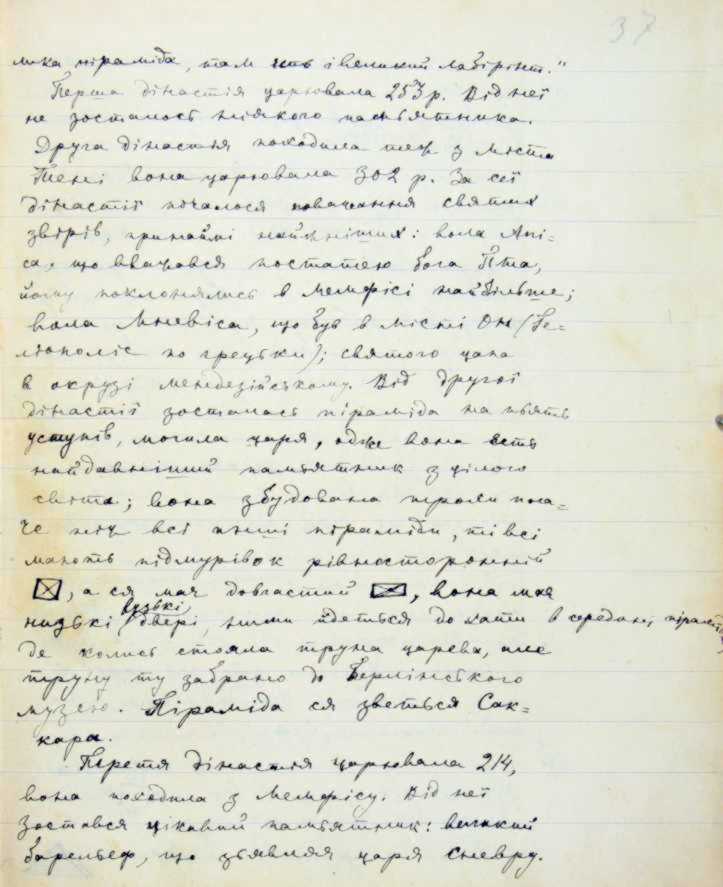 37
лика піраміда, там есть і великий лабірінт."
Перша дінастія царювала 253 р. Від неї
не зосталось ніякого памьятника.
Друга дінастія походила теж з міста
Тені вона царювала 302 р. За сеї
дінастії почалося поважання святих
звірів, принаймі найжніших: вола Апі=
са, що вважався постаттю бога Пта,
йому поклонялись в Мемфісі найбільше;
вола Мневіса, що був в місті Он (Ге=
ліополіс по грецьки); святого цапа
в окрузі мендезійському. Від другої
дінастії зосталась піраміда на пьять
уступів, могила царя, одже вона есть
найдавніший памьятник з цілого
світа; вона збудована трохи іна=
че ніж всі інші піраміди, ті всі
мають підмурівок рівносторонній
, а ся має довгастий , вона має
низькі вузькі двері, ними йдеться до хати в середині піраміди,
де колись стояла труна царева, але
труну ту забрано до Берлінського
музею. Піраміда ся зветься Сак=
кара.
Третя дінастія царювала 214,
вона походила з Мемфісу. Від неї
зостався цікавий памьятник: великий
барельеф, що зьявляя царя Сневру.